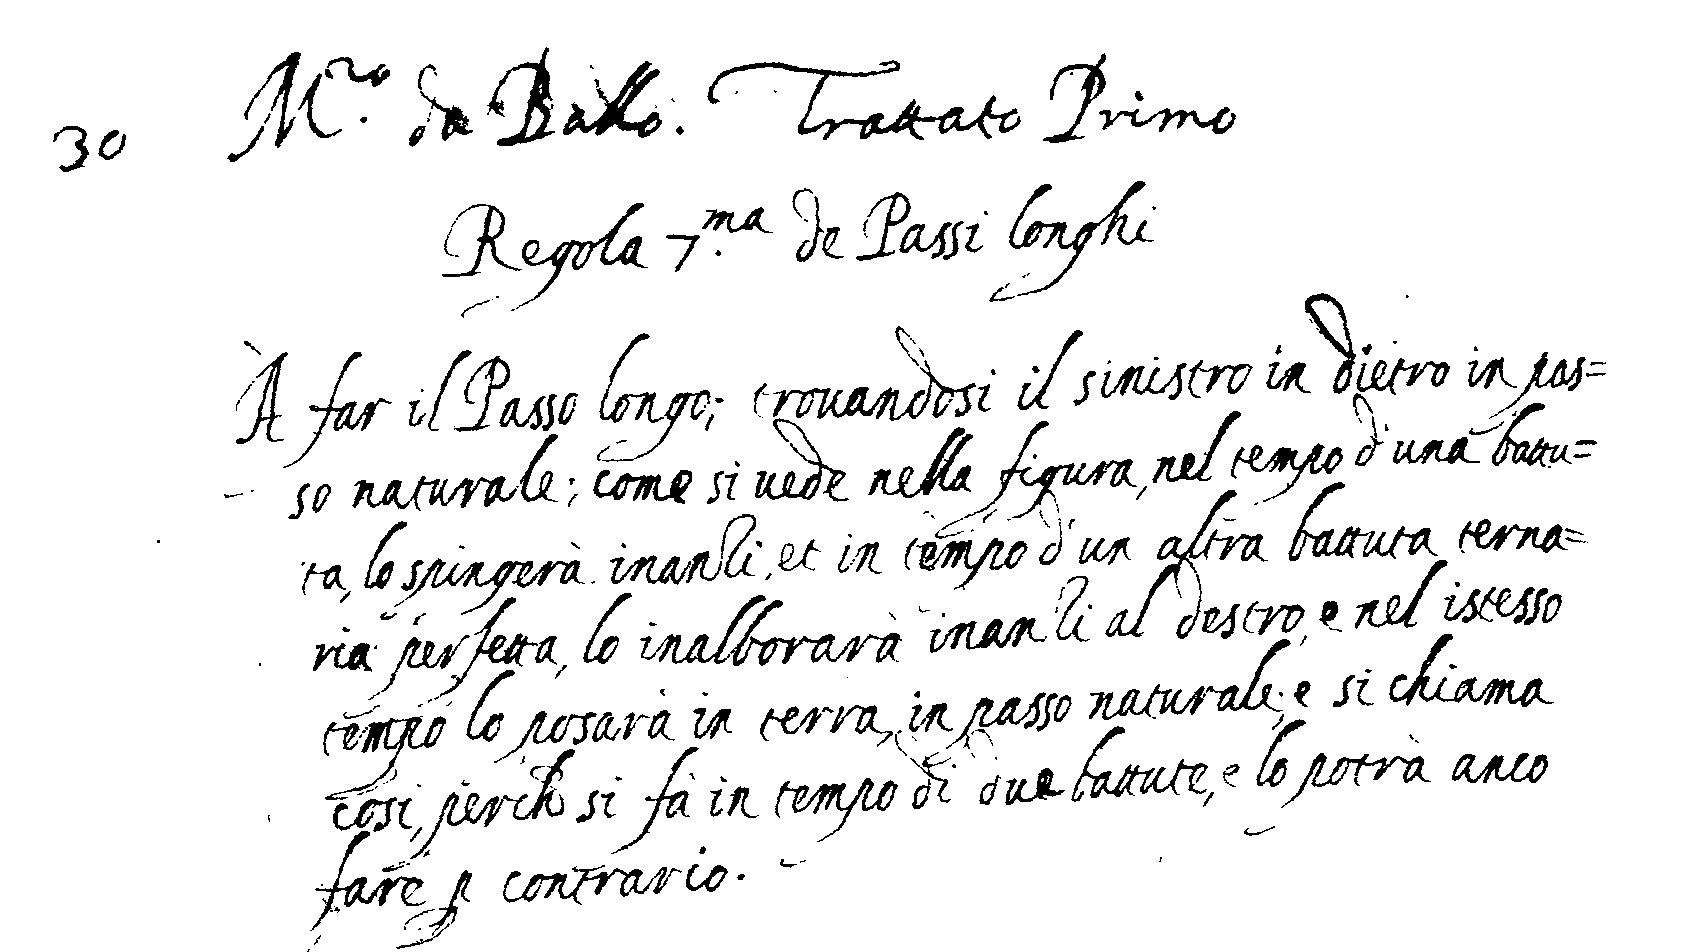 30 M.ro da Ballo. Trattato Primo
Regola 7.ma de Passi longhi
À far il Passo longo; trouandosi il sinistro in dietro in pas=
so naturale; come si uede nella figura, nel tempo d'una battu=
ta, lo spingerà inanzi, et in tempo d'un altra battuta terna=
ria perfetta, lo inalborarà inanzi al destro, e nel istesso
tempo lo posarà in terra, in passo naturale; e si chiama
cosi, perch si fà in tempo di due battute, e lo potrà anco
fare p contrario.